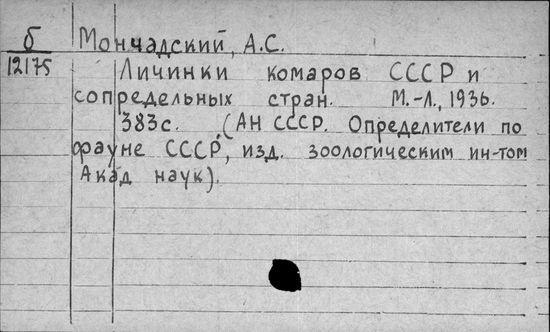 б Мончадский, А.С.
12175
Личинки комаров СССР и
сопредельных стран. М.-Л., 1936.
383с. (АН СССР. Определители по
фауне СССР, изд. зоологическим ин-том
Акад наук).